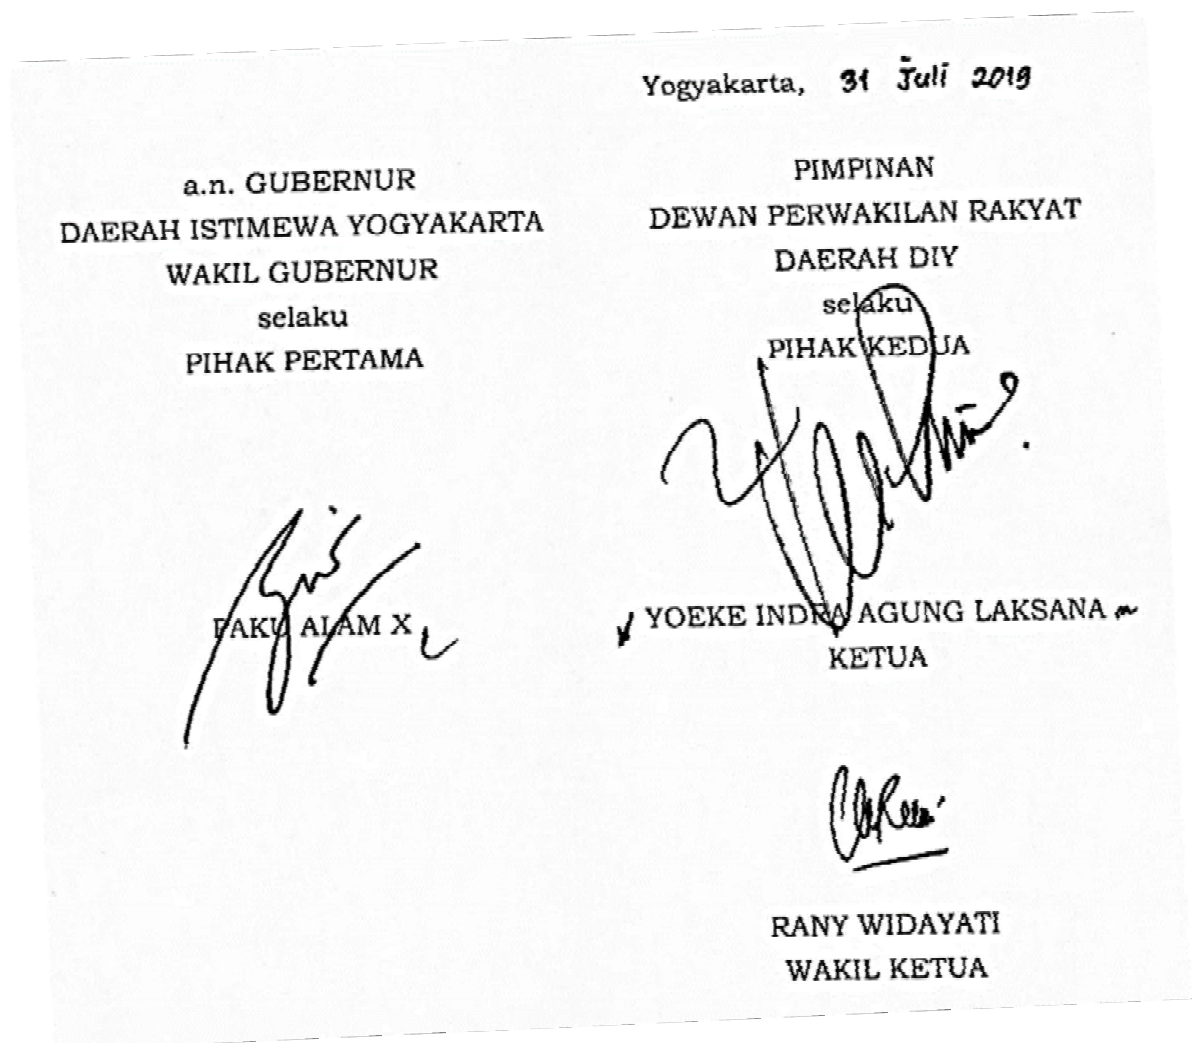 Yogyakarta, 31 Juli 2019
a.n. GUBERNUR
DAERAH ISTIMEWA YOGYAKARTA
WAKIL GUBERNUR
selaku
PIHAK PERTAMA
PAKU ALAM X
PIMPINAN
DEWAN PERWAKILAN RAKYAT
DAERAH DIY
selaku
PIHAK KEDUA
YOEKE INDRA AGUNG LAKSANA
KETUA
RANY WIDAYATI
WAKIL KETUA